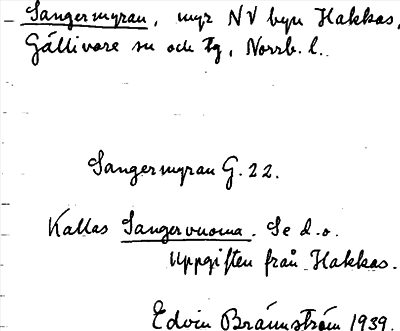 Sangermyran, myr NV byn Hakkas,
Gällivare sn och tg, Norrb. l.
Sangermyran G. 22.
Kallas Sangervuoma. Se d. o.
Uppgiften från Hakkas.
Edvin Brännström 1939.